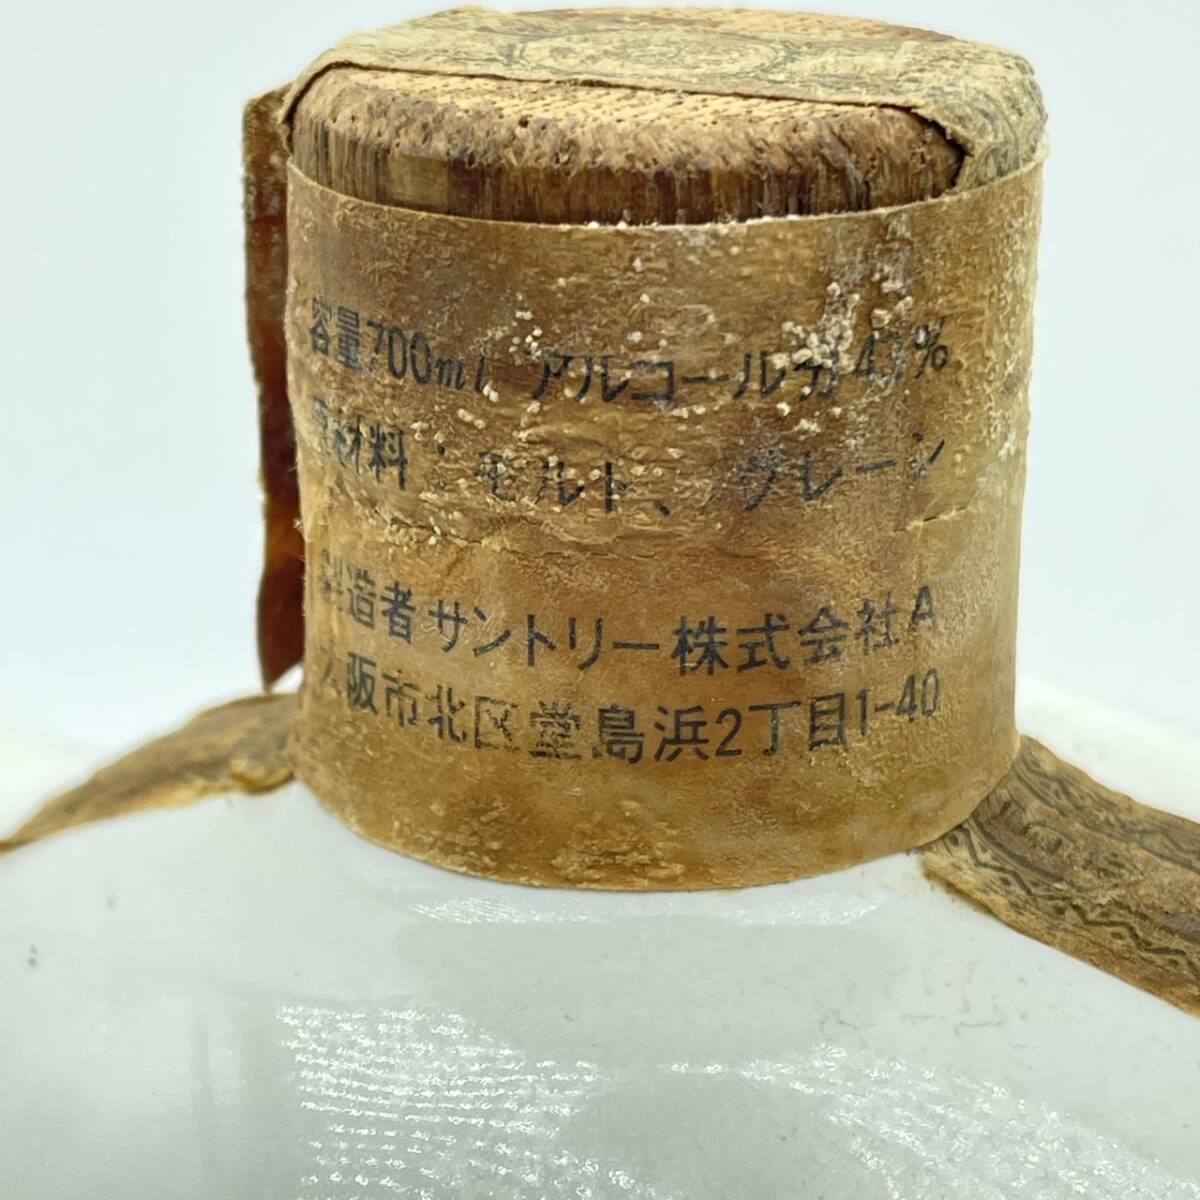 容量700ml アルコール分43%
原材料:モルト、グレーン
製造者サントリー株式会社A
大阪市北区堂島浜2丁目1-40